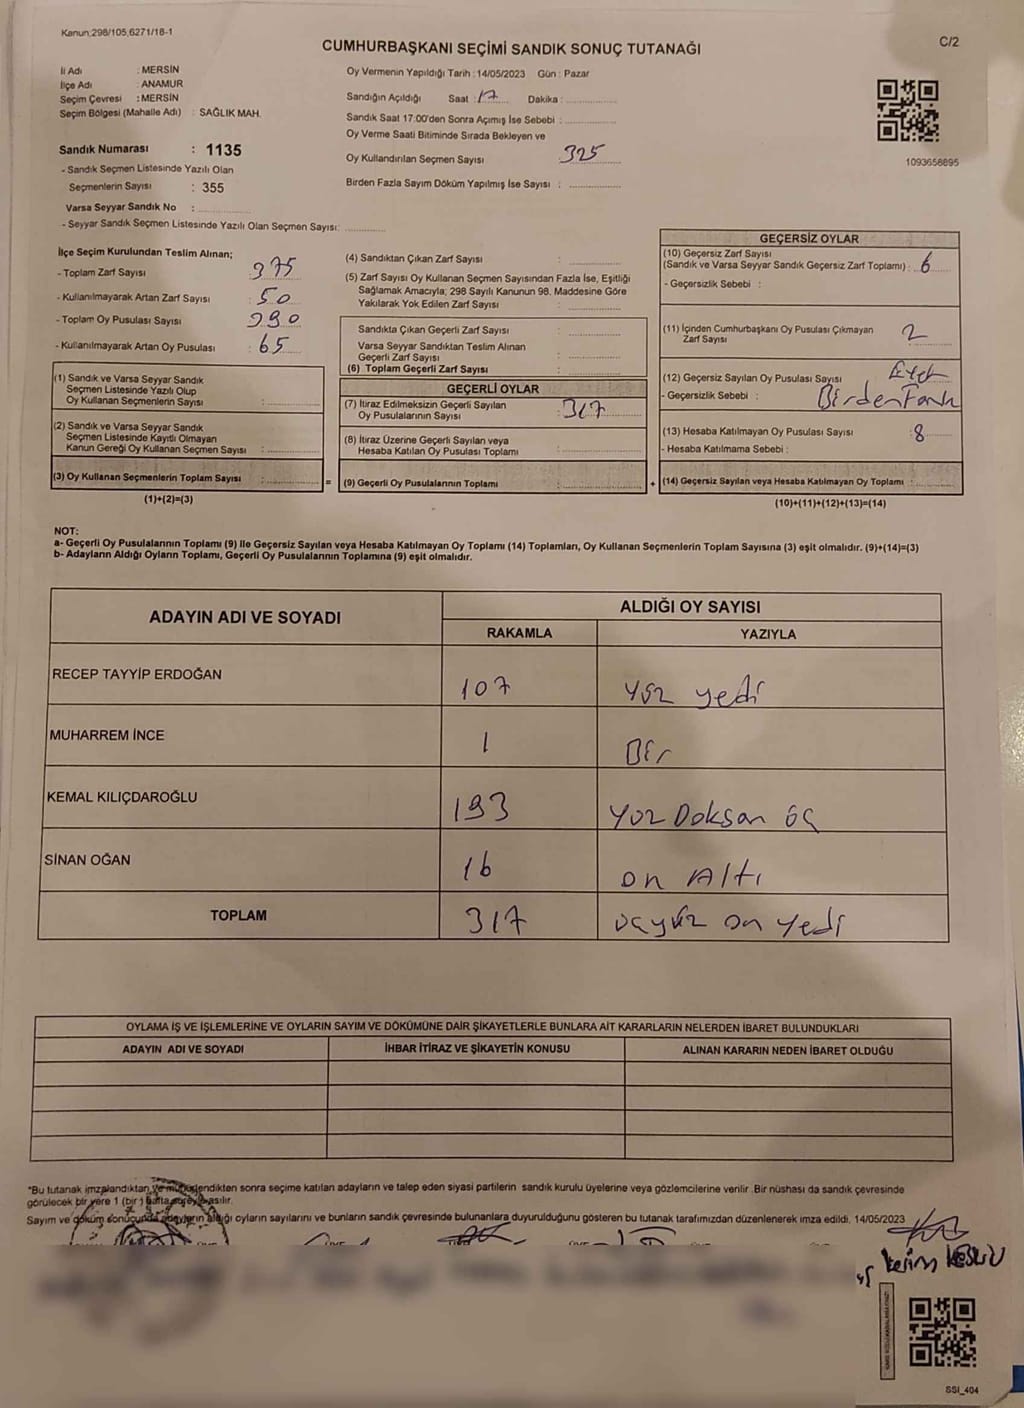 Kanun;298/105,6271/18-1
C/2
CUMHURBAŞKANI SEÇİMİ SANDIK SONUÇ TUTANAĞI
İl Adı : MERSİN
İlçe Adı : ANAMUR
Seçim Çevresi : MERSİN
Seçim Bölgesi (Mahalle Adı) : SAĞLIK MAH.
Sandık Numarası : 1135
- Sandık Seçmen Listesinde Yazılı Olan
Seçmenlerin Sayısı : 355
Varsa Seyyar Sandık No :
- Seyyar Sandık Seçmen Listesinde Yazılı Olan Seçmen Sayısı:
Oy Vermenin Yapıldığı Tarih : 14/05/2023 Gün : Pazar
Sandığın Açıldığı Saat : 17 Dakika :
Sandık Saat 17:00'den Sonra Açımış İse Sebebi :
Oy Verme Saati Bitiminde Sırada Bekleyen ve
Oy Kullandırılan Seçmen Sayısı : 325
Birden Fazla Sayım Döküm Yapılmış İse Sayısı :
1093658895
İlçe Seçim Kurulundan Teslim Alınan;
- Toplam Zarf Sayısı : 375
- Kullanılmayarak Artan Zarf Sayısı : 50
- Toplam Oy Pusulası Sayısı : 390
- Kullanılmayarak Artan Oy Pusulası : 65
(1) Sandık ve Varsa Seyyar Sandık
Seçmen Listesinde Yazılı Olup
Oy Kullanan Seçmenlerin Sayısı :
(2) Sandık ve Varsa Seyyar Sandık
Seçmen Listesinde Kayıtlı Olmayan
Kanun Gereği Oy Kullanan Seçmen Sayısı :
(3) Oy Kullanan Seçmenlerin Toplam Sayısı :
(1)+(2)=(3)
(4) Sandıktan Çıkan Zarf Sayısı :
(5) Zarf Sayısı Oy Kullanan Seçmen Sayısından Fazla İse, Eşitliği
Sağlamak Amacıyla; 298 Sayılı Kanunun 98. Maddesine Göre
Yakılarak Yok Edilen Zarf Sayısı :
Sandıkta Çıkan Geçerli Zarf Sayısı :
Varsa Seyyar Sandıktan Teslim Alınan
Geçerli Zarf Sayısı :
(6) Toplam Geçerli Zarf Sayısı :
GEÇERLİ OYLAR
(7) İtiraz Edilmeksizin Geçerli Sayılan
Oy Pusulalarının Sayısı : 317
(8) İtiraz Üzerine Geçerli Sayılan veya
Hesaba Katılan Oy Pusulası Toplamı :
= (9) Geçerli Oy Pusulalarının Toplamı :
GEÇERSİZ OYLAR
(10) Geçersiz Zarf Sayısı
(Sandık ve Varsa Seyyar Sandık Geçersiz Zarf Toplamı) : 6
- Geçersizlik Sebebi :
(11) İçinden Cumhurbaşkanı Oy Pusulası Çıkmayan
Zarf Sayısı 2
(12) Geçersiz Sayılan Oy Pusulası Sayısı
- Geçersizlik Sebebi : Birden
(13) Hesaba Katılmayan Oy Pusulası Sayısı : 8
- Hesaba Katılmama Sebebi :
+ (14) Geçersiz Sayılan veya Hesaba Katılmayan Oy Toplamı :
(10)+(11)+(12)+(13)=(14)
NOT:
a- Geçerli Oy Pusulalarının Toplamı (9) İle Geçersiz Sayılan veya Hesaba Katılmayan Oy Toplamı (14) Toplamları, Oy Kullanan Seçmenlerin Toplam Sayısına (3) eşit olmalıdır. (9)+(14)=(3)
b- Adayların Aldığı Oyların Toplamı, Geçerli Oy Pusulalarının Toplamına (9) eşit olmalıdır.
ADAYIN ADI VE SOYADI
ALDIĞI OY SAYISI
RAKAMLA YAZIYLA
RECEP TAYYİP ERDOĞAN 107 Yüz yedi
MUHARREM İNCE 1 Bir
KEMAL KILIÇDAROĞLU 193 Yüz Doksan üç
SİNAN OĞAN 16 on Altı
TOPLAM 317 üçyüz on yedi
OYLAMA İŞ VE İŞLEMLERİNE VE OYLARIN SAYIM VE DÖKÜMÜNE DAİR ŞİKAYETLERLE BUNLARA AİT KARARLARIN NELERDEN İBARET BULUNDUKLARI
ADAYIN ADI VE SOYADI İHBAR İTİRAZ VE ŞİKAYETİN KONUSU ALINAN KARARIN NEDEN İBARET OLDUĞU
*Bu tutanak imzalandıktan ve mühürlendikten sonra seçime katılan adayların ve talep eden siyasi partilerin sandık kurulu üyelerine veya gözlemcilerine verilir. Bir nüshası da sandık çevresinde
görülecek bir yere 1 (bir) hafta süreyle asılır.
Sayım ve döküm sonucunda adayların aldığı oyların sayılarını ve bunların sandık çevresinde bulunanlara duyurulduğunu gösteren bu tutanak tarafımızdan düzenlenerek imza edildi. 14/05/2023
Kerim
SSI_404